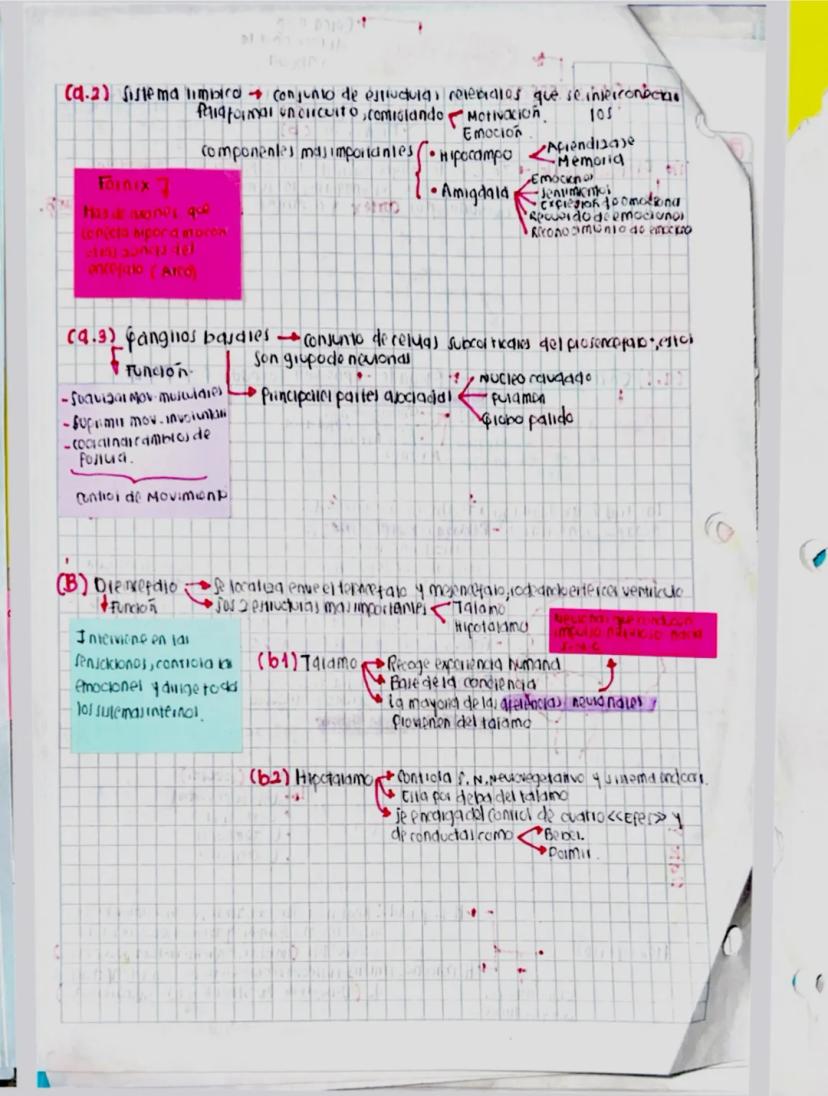 (a.2) Sistema limbico → conjunto de estructuras cerebrales que se interconectan
para formar un circuito, controlando los
Motivación.
Emoción.
componentes mas importantes
• Hipocampo
Aprendizaje
Memoria
• Amigdala
Emociones
Sentimientos
Expresion de emociones
Recuerdo de emociones
Reconocimiento de emoción
Fornix
Haz de axones que
conecta hipocampo con
otras zonas del
encefalo (Arco)
(a.3) ganglios basales → conjunto de celulas subcorticales del prosencefalo, estos
son grupo de neuronas
Función.
Principales partes asociadas
Nucleo caudado
Putamen
Globo palido
- Suavizar mov. musculares
- Suprimir mov. involuntari
- coordinar cambios de
Postura.
control de Movimiento
(B) Diencefalo → Se localiza entre el telencefalo y mesencefalo, rodeando el tercer ventriculo
Función
Sus 2 estructuras mas importantes
Talamo
Hipotalamo
Neuronas que conducen
impulso nervioso hacia
Interviene en las
sensaciones, controla las
emociones y dirige todos
los sistemas internos.
(b1) Talamo
Recoge experiencia humana
Base de la conciencia
La mayoria de las aferencias neuronales
provienen del talamo
(b2) Hipotalamo
Controla S.N. Neurovegetativo y sistema endocri.
Esta por debajo del talamo
Se encarga del control de cuatro <<Efes>> y
de conductas como
Beber.
Dormir.